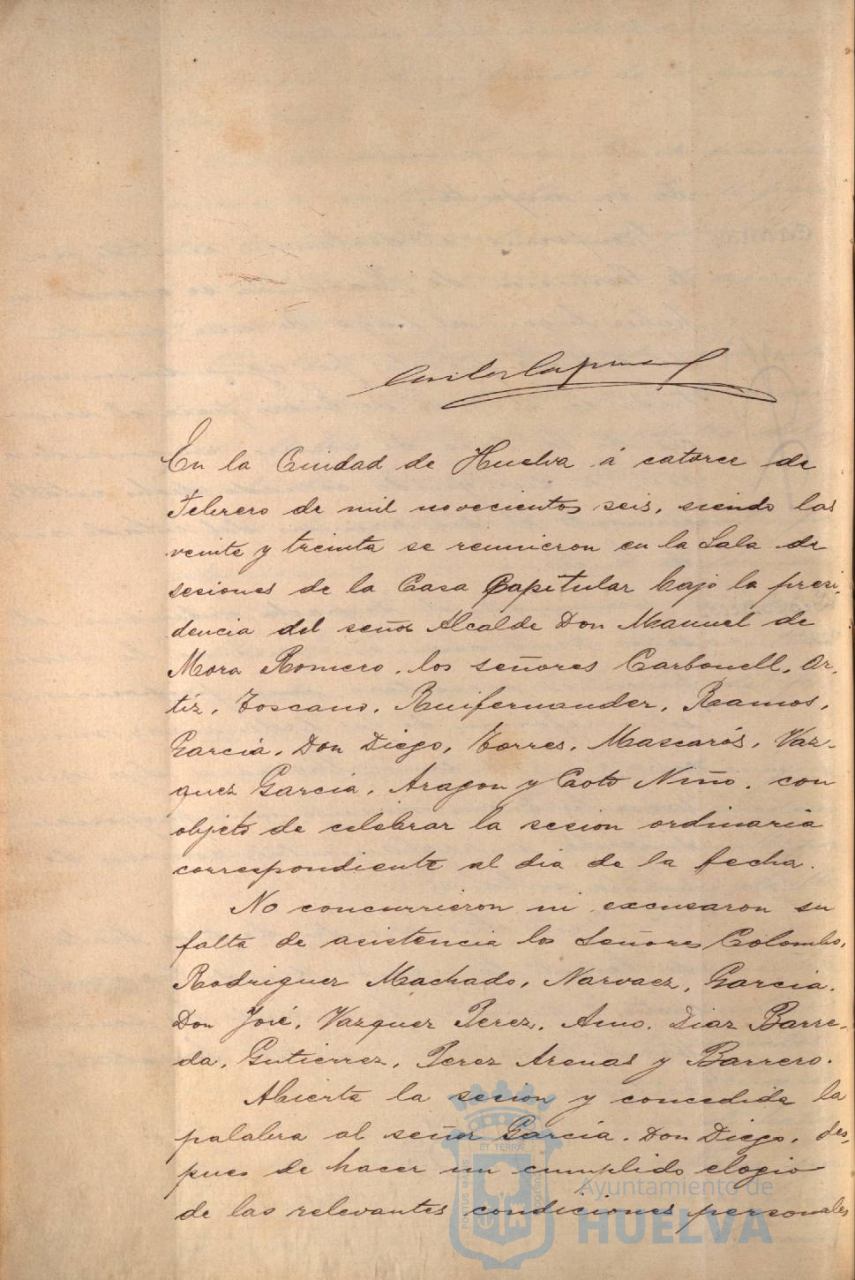 En la Ciudad de Huelva á catorce de
Febrero de mil novecientos seis, siendo las
veinte y treinta se reunieron en la Sala de
sesiones de la Casa Capitular bajo la presi-
dencia del señor Alcalde Don Manuel de
Mora Romero, los señores Carbonell, Or-
tíz, Toscano, Ruifernandez, Ramos,
García, Don Diego, Torres, Mascarós, Vaz-
quez García, Aragon y Coto Niño, con
objeto de celebrar la sesion ordinaria
correspondiente al dia de la fecha.
No concurrieron ni excusaron su
falta de asistencia los Señores Colombo,
Rodriguez Machado, Narvaez, García,
Don José, Vazquez Perez, Amo, Diaz Barre-
da, Gutierrez, Perez Arenas y Barrero.
Abierta la sesion y concedida la
palabra al señor García, Don Diego, des-
pues de hacer un cumplido elogio
de las relevantes condiciones personales
PORTUS MARIS ET TERRÆ CUSTODIA
Ayuntamiento de
HUELVA